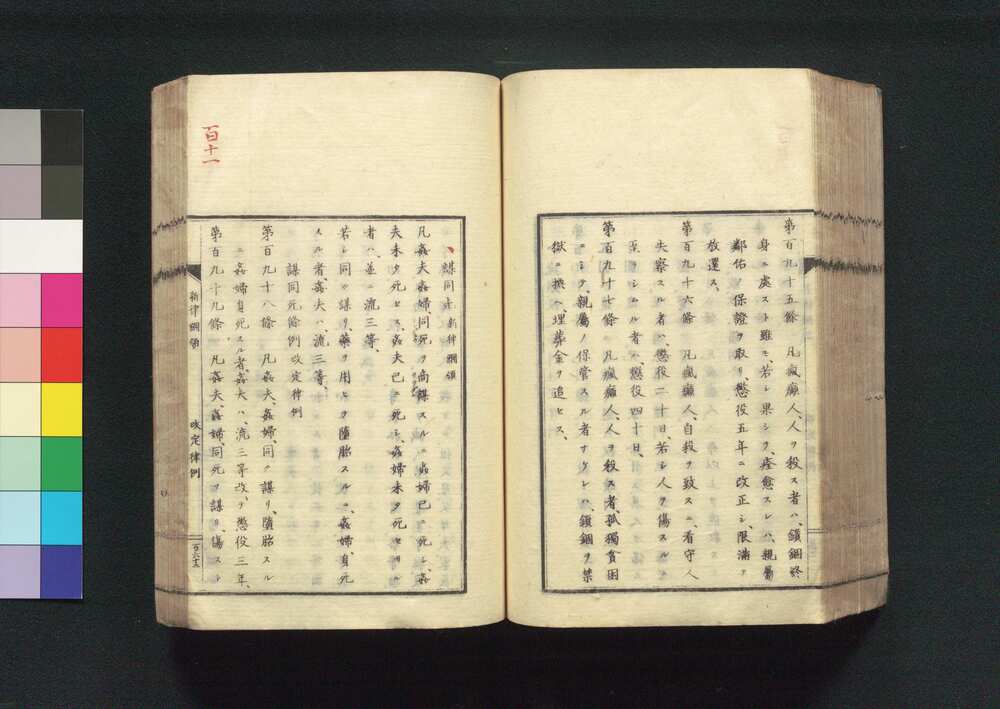 第百九十五條 凡瘋癲人人ヲ殺ス者ハ、鎖錮終
身ニ處スト雖モ、若シ果シテ、痊愈スレハ、親屬
鄰佑ノ保證ヲ取リ、懲役五年ニ改正シ、限滿テ
放還ス、
第百九十六條 凡瘋癲人、自殺ヲ致スニ、看守人
失察スル者ハ、懲役二十日、若シ人ヲ傷スルニ
至ラシムル者ハ、懲役四十日、
第百九十七條 凡瘋癲人、人ヲ殺ス者、孤獨貧困
ニシテ、親屬ノ保管スル者ナケレハ、鎖錮ヲ禁
獄ニ換ヘ、埋葬金ヲ追セス、
謀同死 新律綱領
凡姦夫姦婦、同死ヲ商謀スルニ、姦婦已ニ死シ、姦
夫未タ死セス、姦夫已ニ死シ、姦婦未タ死セサル
者ハ、並ニ流三等、
若シ同ク謀リ、藥ヲ用ヒテ、墮胎スルニ、姦婦、身死
スル者、姦夫ハ、流三等、
謀同死條例 改定律例
第百九十八條 凡姦夫、姦婦、同ク謀リ、墮胎スル
ニ、姦婦身死スル者、姦夫ハ、流三等改テ懲役三年、
第百九十九條 凡姦夫、姦婦同死ヲ謀リ、傷スト
新律綱領 改定律例
百六十五
百十一